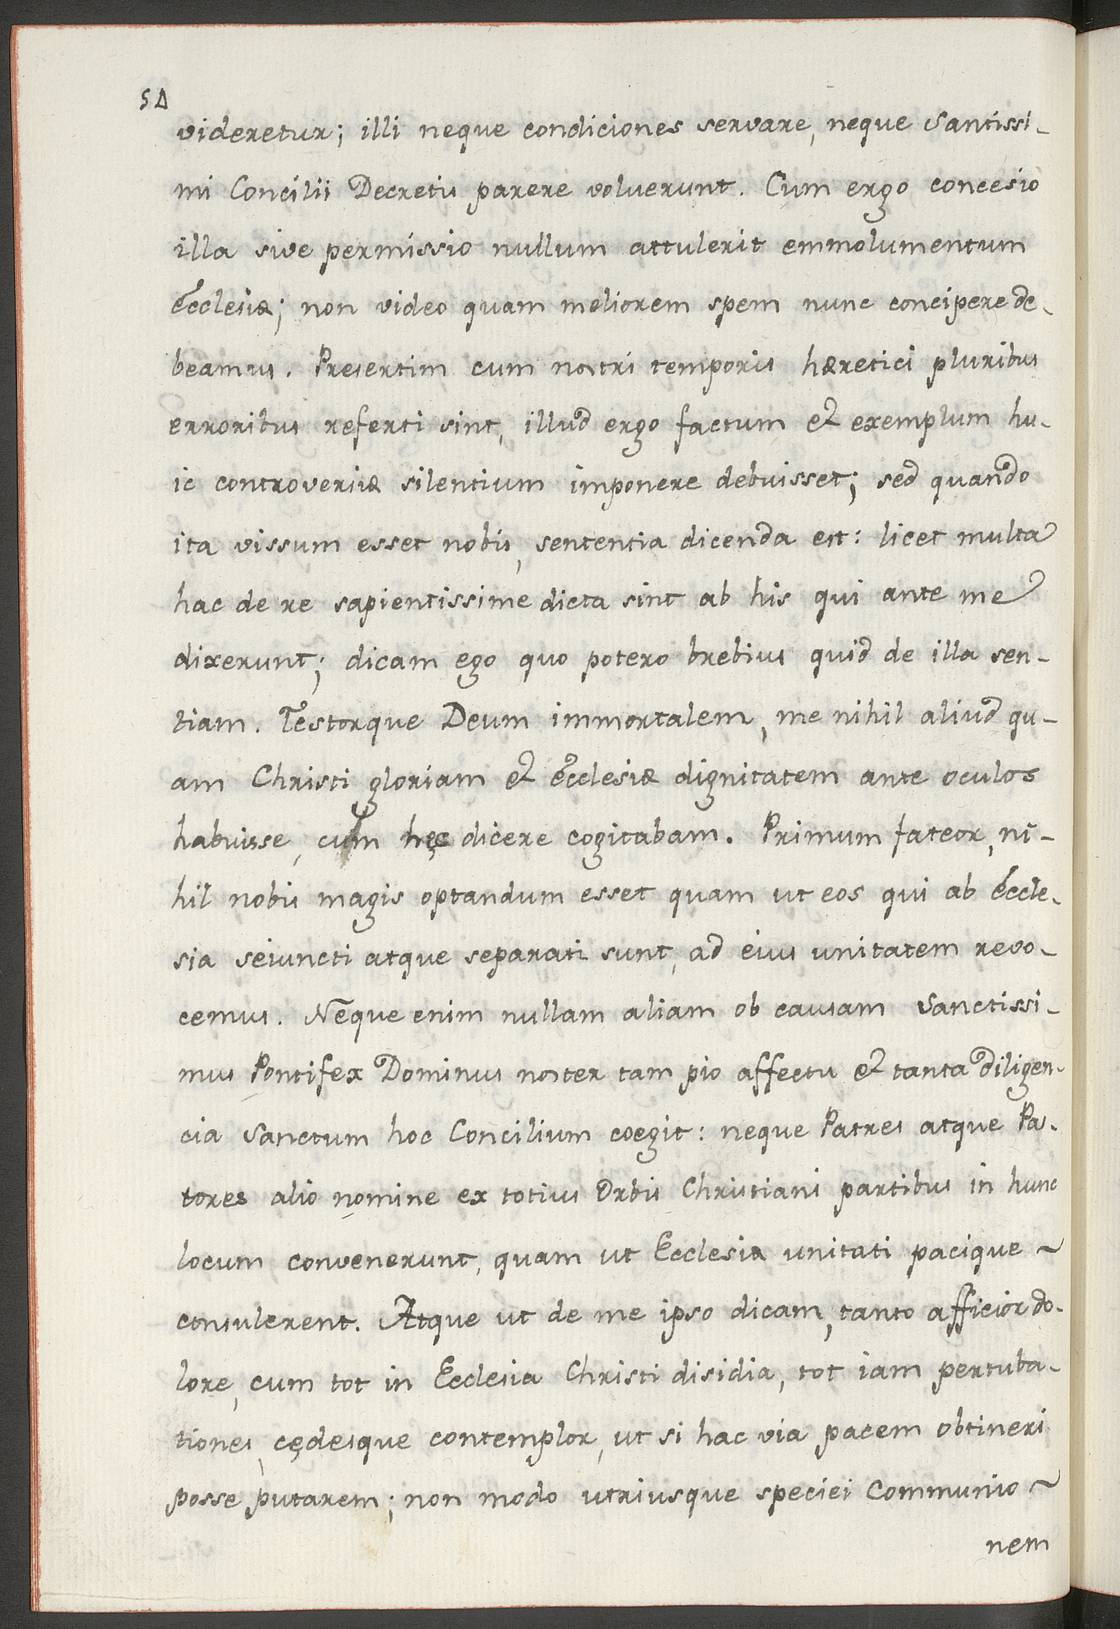 54
videretur; illi neque condiciones servare, neque Santissi-
mi Concilii Decretis parere voluerunt. Cum ergo concesio
illa sive permissio nullum attulerit emmolumentum
Ecclesiæ; non video quam meliorem spem nunc concipere de-
beamus. Presertim cum nostri temporis hæretici pluribus
erroribus referti sint, illud ergo factum & exemplum hu-
ic controversiæ silentium imponere debuisset; sed quando
ita vissum esset nobis, sententia dicenda est: licet multa
hac de re sapientissime dicta sint ab his qui ante me
dixerunt; dicam ego quo potero brebius quid de illa sen-
tiam. Testorque Deum immortalem, me nihil aliud qu-
am Christi gloriam & Ecclesiæ dignitatem ante oculos
habuisse, cum hęc dicere cogitabam. Primum fateor, ni-
hil nobis magis optandum esset quam ut eos qui ab Eccle-
sia seiuncti atque separati sunt, ad eius unitatem revo-
cemus. Neque enim nullam aliam ob causam Sanctissi-
mus Pontifex Dominus noster tam pio affectu & tanta diligen-
cia Sanctum hoc Concilium coegit: neque Patres atque Pa-
tores alio nomine ex totius Orbis Christiani partibus in hunc
locum convenerunt, quam ut Ecclesiæ unitati pacique ~
consulerent. Atque ut de me ipso dicam, tanto afficior do-
lore, cum tot in Ecclesia Christi disidia, tot iam pertuba-
tiones, cędesque contemplor, ut si hac via pacem obtineri
posse putarem; non modo utriusque speciei Communio ~
nem